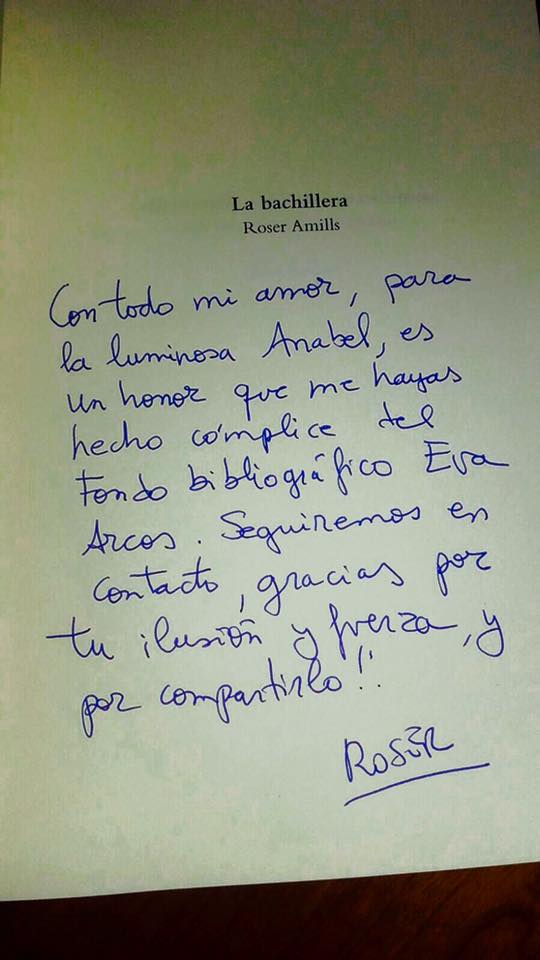 La bachillera
Roser Amills
Con todo mi amor, para
la luminosa Anabel, es
un honor que me hayas
hecho cómplice del
Fondo bibliográfico Eva
Arcos. Seguiremos en
contacto, gracias por
tu ilusión y fuerza, y
por compartirlo!!
ROSER